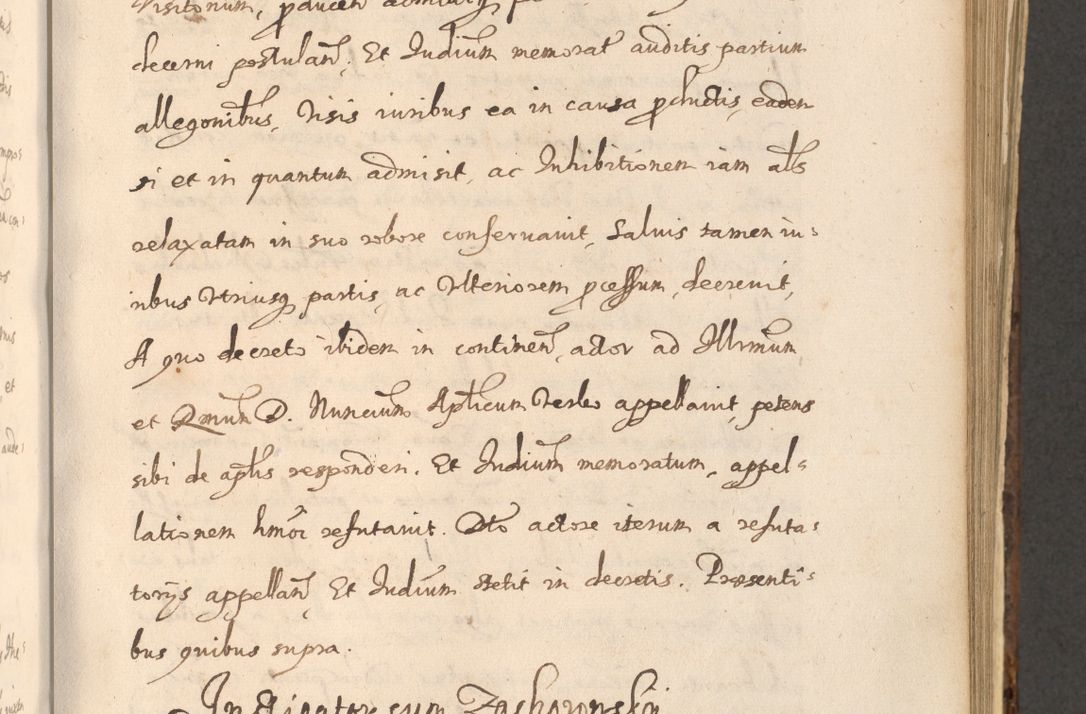 decerni postulan̄, Et Iudiūm memorat̄ auditis partium
allegōnibus, Visis iuribus ea in causa productis, eaden
si et in quantum admisit, ac Inhibitionem iam al̄s
relaxatam in suo robore conservavit, Salvis tamen iu:
ribus Vtriusq̧ partis, ac Vlteriorem pcessum decrevit,
A quo decreto ibidem in continen̄, actor ad Illrmūm
et Rmūm D. Nunciūm Aplicum Verbo appellavit, petens
sibi de apl̄is responderi. Et Iudiūm memoratum, appel-
lationem hmōi refutavit. Dto actore iterum a refuta:
torijs appellan̄, Et Iudiūm stetit in decretis. Præsenti:
bus quibus supra.
Instigator cum Zachoronskij